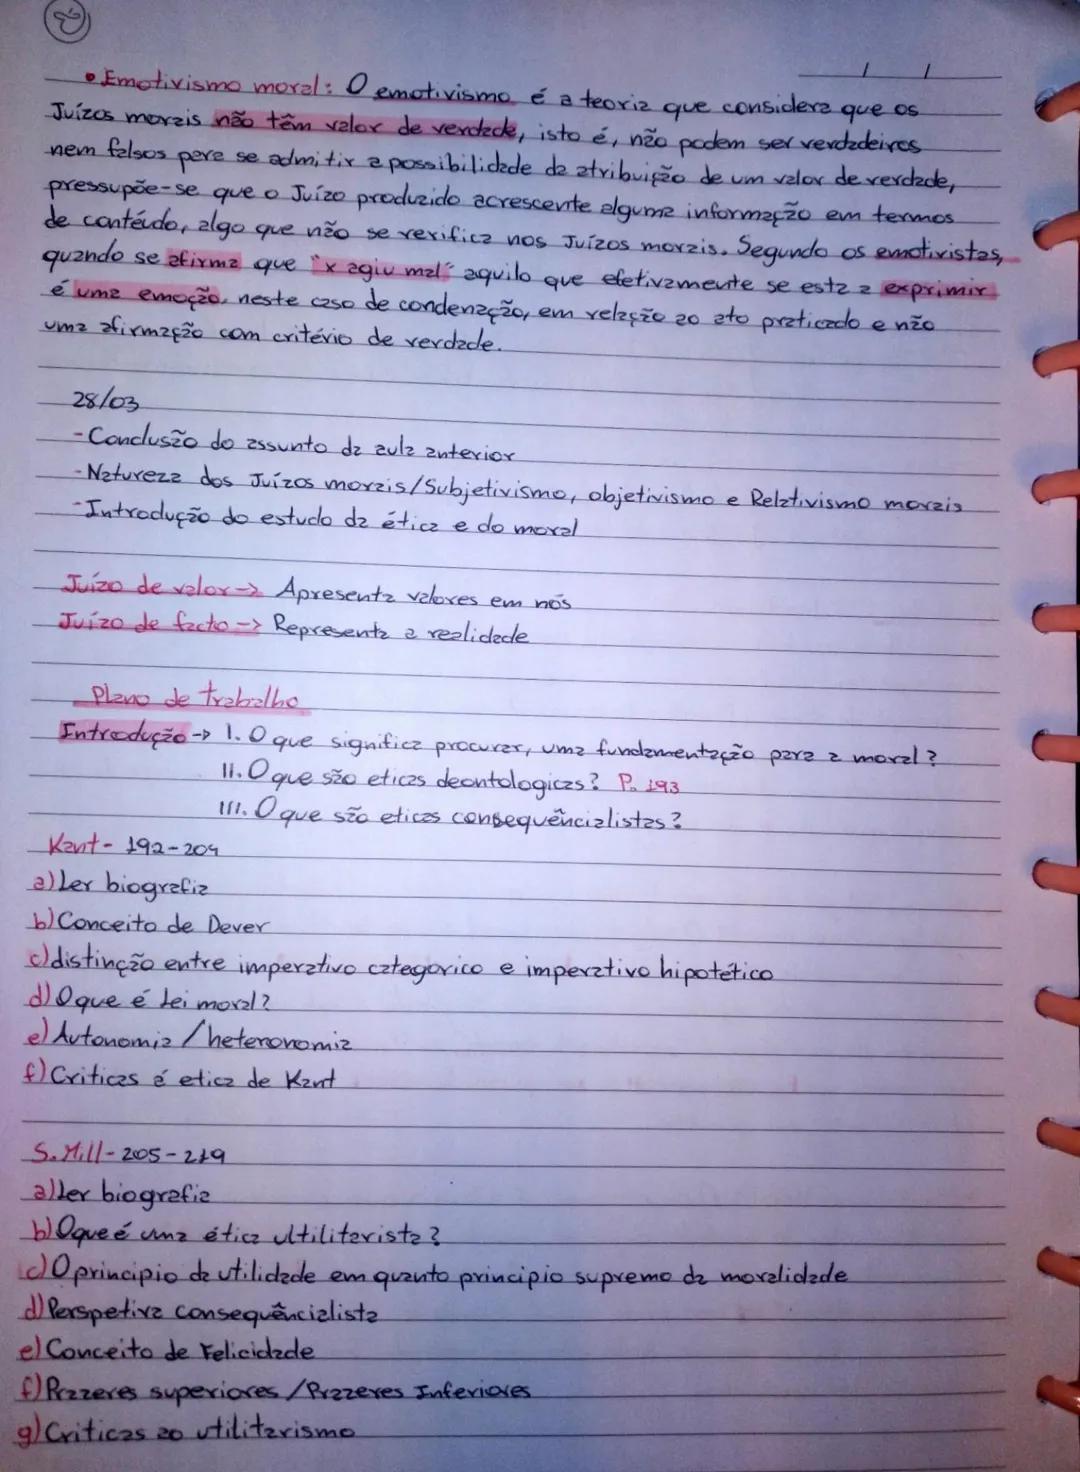 • Emotivismo moral: O emotivismo é a teoria que considera que os
Juízos morais não têm valor de verdade, isto é, não podem ser verdadeiros
nem falsos para se admitir a possibilidade da atribuição de um valor de verdade,
pressupõe-se que o Juízo produzido acrescente alguma informação em termos
de contéudo, algo que não se verifica nos Juízos morais. Segundo os emotivistas,
quando se afirma que "x agiu mal" aquilo que efetivamente se esta a exprimir
é uma emoção, neste caso de condenação, em relação ao ato praticado e não
uma afirmação com critério de verdade.
28/03
-Conclusão do assunto da aula anterior
-Natureza dos Juízos morais/Subjetivismo, objetivismo e Relativismo morais
-Introdução do estudo da ética e do moral
Juízo de valor -> Apresenta valores em nós
Juízo de facto -> Representa a realidade
Plano de trabalho
Introdução -> I. O que significa procurar, uma fundamentação para a moral?
II. O que são eticas deontologicas? P. 193
III. O que são eticas consequêncialistas?
Kant - 192-204
a) Ler biografia
b) Conceito de Dever
c) distinção entre imperativo categorico e imperativo hipotético
d) O que é Lei moral?
e) Autonomia / heteronomia
f) Criticas é etica de Kant
S. Mill - 205-219
a) Ler biografia
b) O que é uma ética ultilitarista?
c) O principio da utilidade em quanto principio supremo da moralidade
d) Perspetiva consequêncialista
e) Conceito de Felicidade
f) Prazeres superiores / Prazeres Inferiores
g) Criticas ao utilitarismo